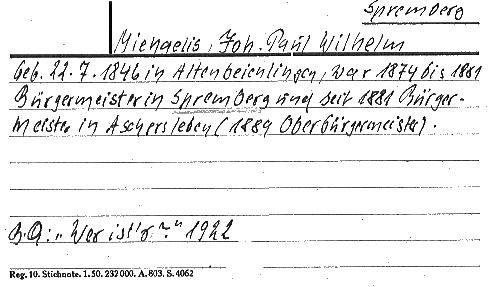 Spremberg
Michaelis, Joh. Paul Wilhelm
Geb. 22.7.1846 in Altenbeichlingen, war 1874 bis 1881
Bürgermeister in Spremberg und seit 1881 Bürger-
meister in Aschersleben (1889 Oberbürgermeister).
B.Q: "Wer ist's?" 1922
Reg. 10. Stichnote. 1. 50. 232 000. A. 803. S. 4062